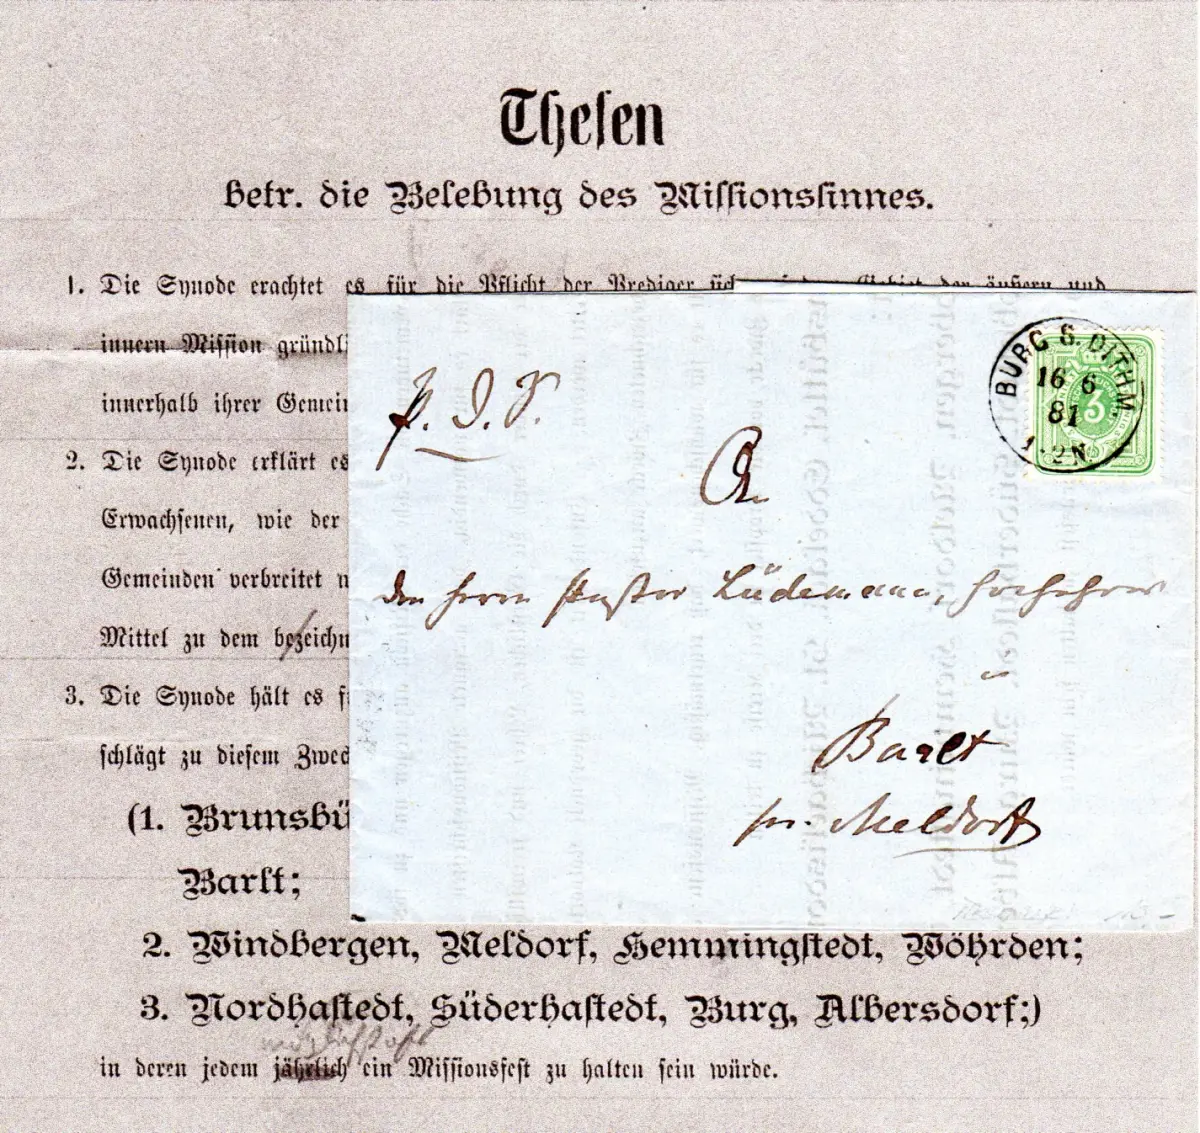 Thesen
betr. die Belebung des Missionssinnes.
1. Die Synode erachtet es für die Pflicht der Prediger sich
innern Mission gründl
innerhalb ihrer Gemein
2. Die Synode erklärt es
Erwachsenen, wie der
Gemeinden verbreitet
Mittel zu dem bezeichn
3. Die Synode hält es f
schlägt zu diesem Zwec
(1. Brunsbü
Barlt;
2. Windbergen, Meldorf, Hemmingstedt, Wöhrden;
3. Nordhastedt, Süderhastedt, Burg, Albersdorf;)
in deren jedem jährlich ein Missionsfest zu halten sein würde.
BURG S. DITHM.
16 6
81
1-2N.
3
p. D. S.
An
den Herrn Pastor Lüdemann,
Barlt
pr. Meldorf